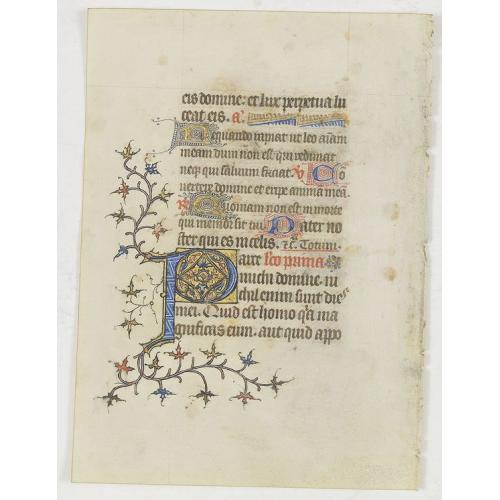 eis domine: et lux perpetua lu
ceat eis. a.
Nequando rapiat ut leo aīam
meam dum non est qui redimat
neqȝ qui saluum faciat. V Co
uertere domine et eripe animā meā.
R Quoniam non est in morte
qui memor sit tui. Pater no
ster qui es in celis. ⁊c̄. Totum.
taire lc̄o prima
Parce michi domine: ni
chyl enim sunt dies
mei. Quid est homo q̄a ma
gnificas eum. aut quid appo